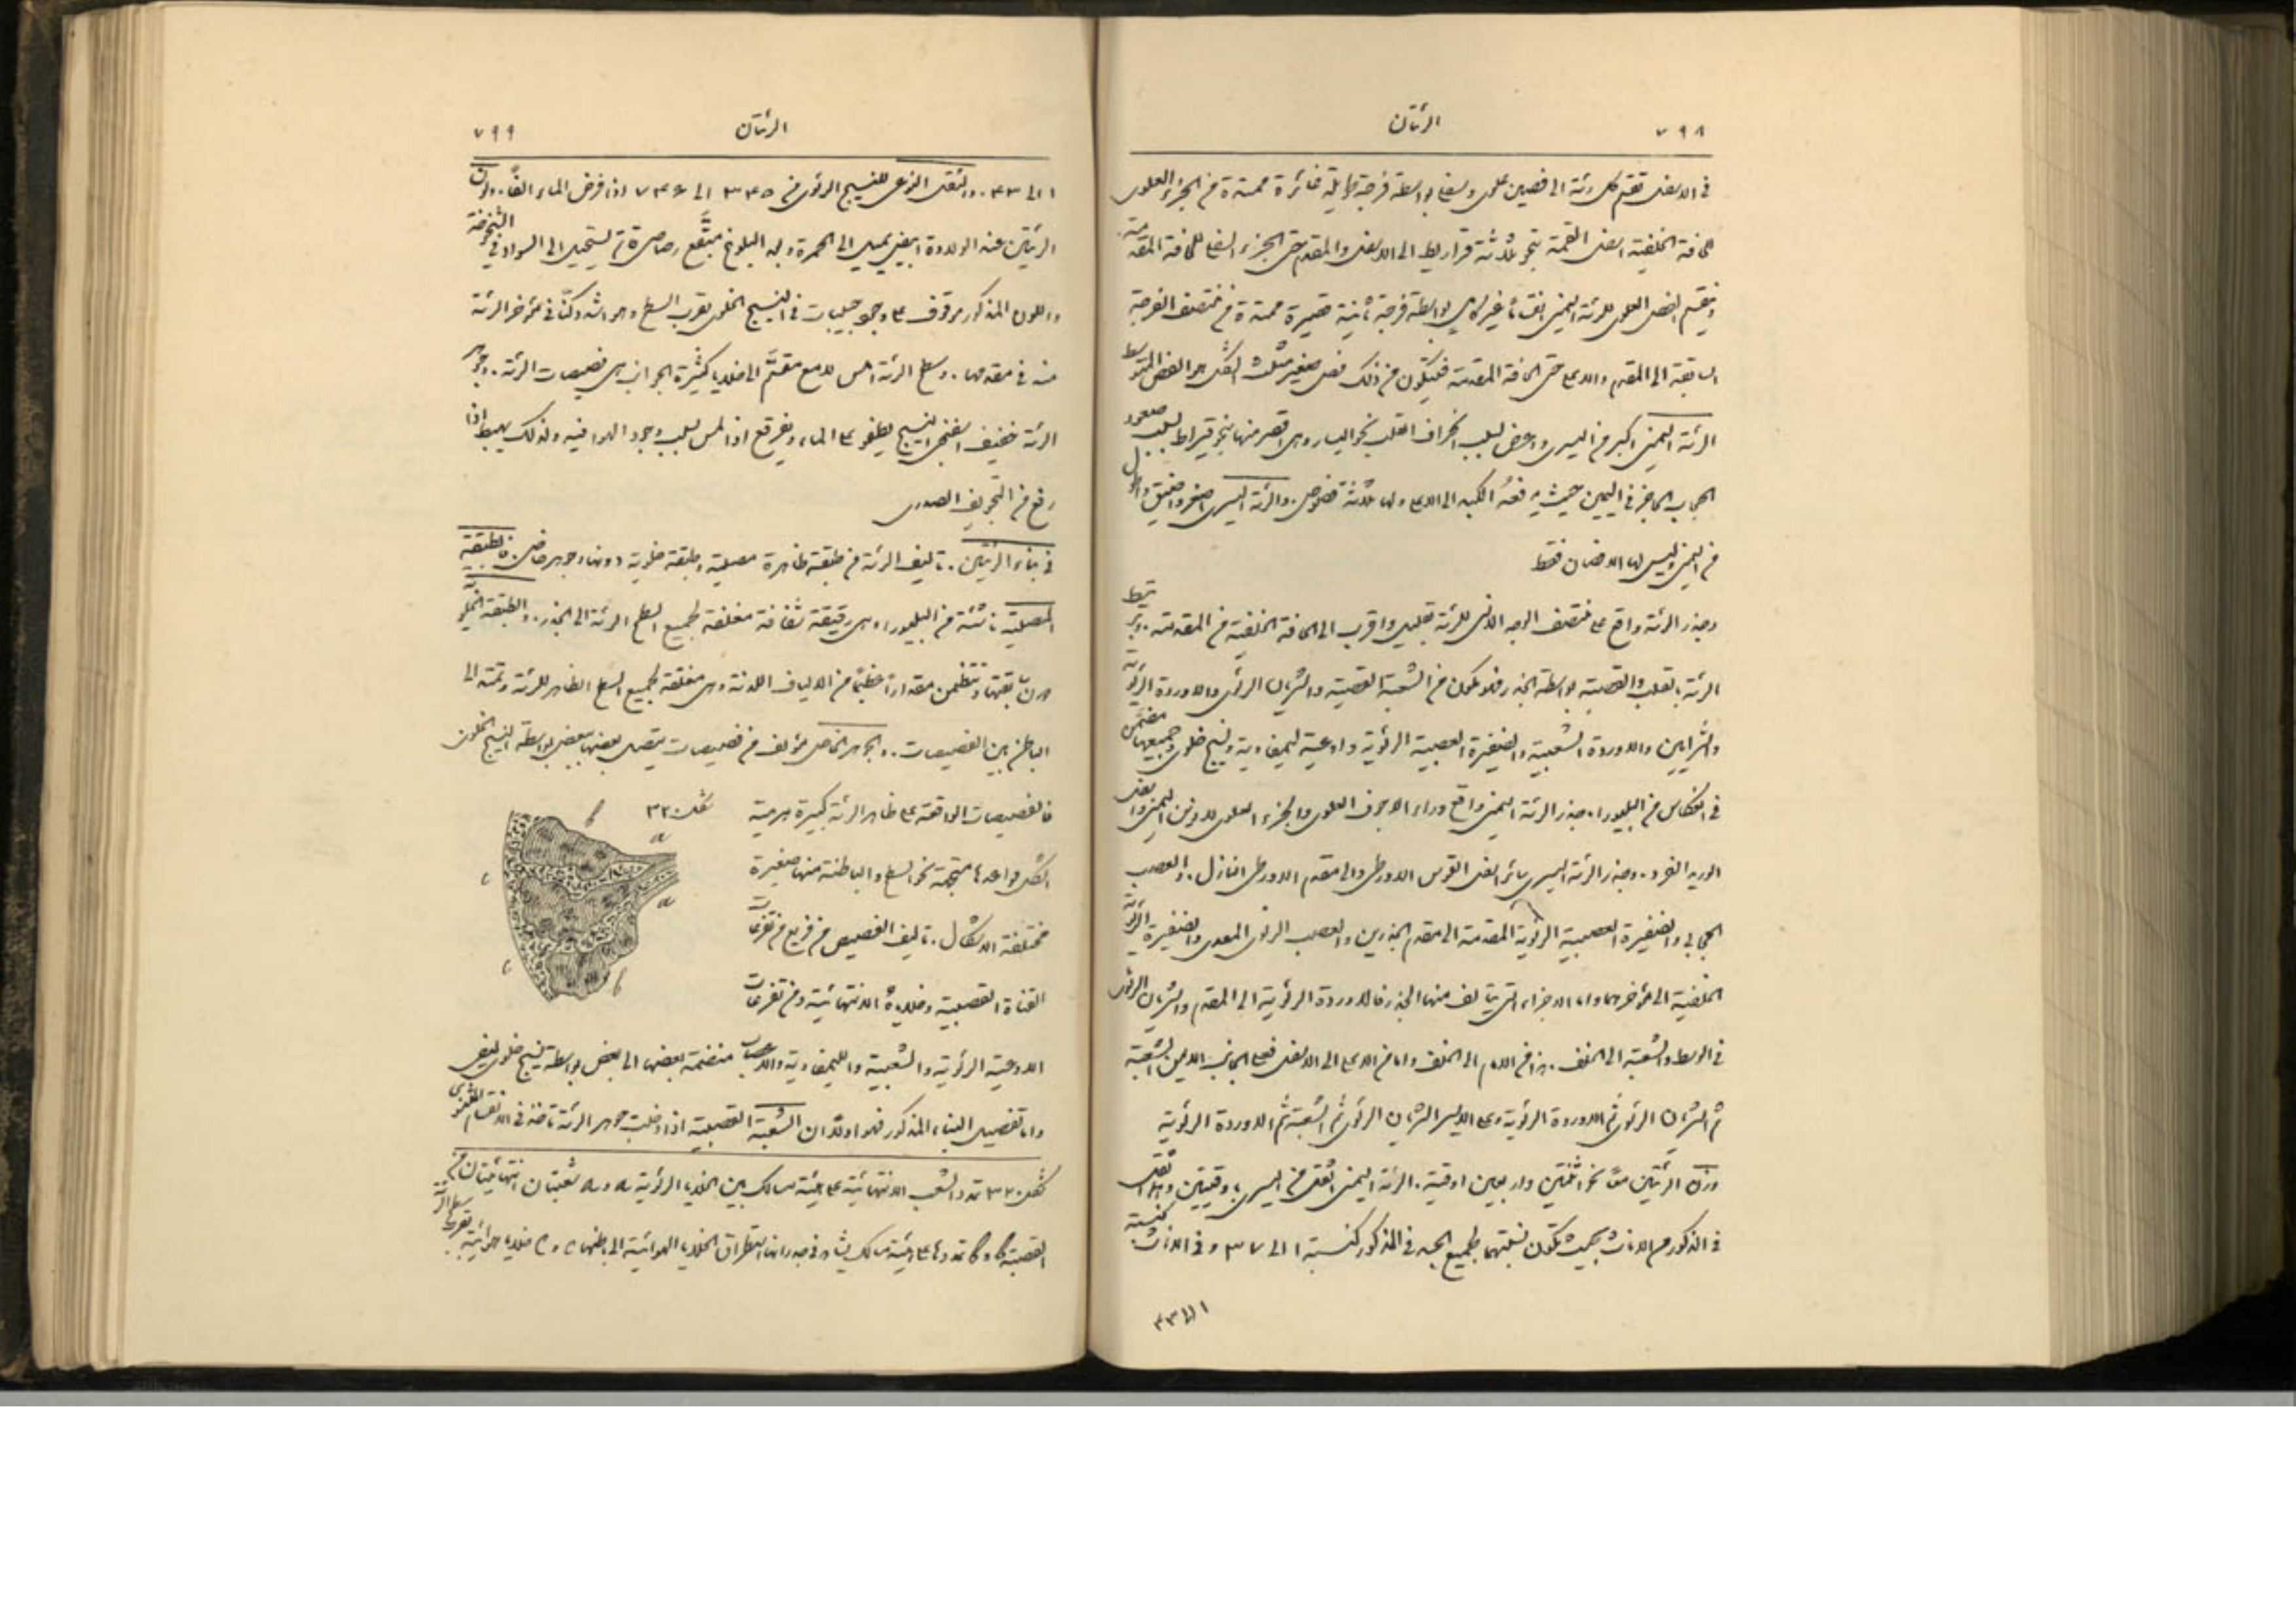 ٧٩٨
الرئتان
في الاسفل تقسم كل رئة الى فصين علوي وسفلي بواسطة فرجة طويلة غائرة ممتدة من الجزء العلوي
للحافة الخلفية اسفل القمة بنحو ثلاثة قراريط الى الاسفل والمقدم حتى الجزء السفلي للحافة المقدمة
وينقسم الفص العلوي للرئة اليمنى انقساماً غير كامل بواسطة فرجة ثانية قصيرة ممتدة من منتصف الفرجة
السابقة الى المقدم والاعلى حتى الحافة المقدمة فيتكون من ذلك فص صغير مثلث الشكل هو الفص المتوسط
الرئة اليمنى اكبر من اليسرى واعرض لسبب انحراف القلب نحو اليسار وهي اقصر منها بنحو قيراط لسبب صعود
الحجاب الحاجز في اليمين حيث يدفعه الكبد الى الاعلى ولها ثلاثة فصوص. والرئة اليسرى اصغر واضيق واطول
من اليمنى وليس لها الا فصان فقط
وجذر الرئة واقع على منتصف الوجه الانسي للرئة بقليل واقرب الى الحافة الخلفية من المقدمة. وترتبط
الرئة بالقلب والقصبة بواسطة الجذر فهو مكون من الشعبة القصبية والشريان الرئوي والاوردة الرئوية
والشرايين والاوردة الشعبية والضفيرة العصبية الرئوية واوعية ليمفاوية ونسيج خلوي وجميعها مضمن
في انعكاس من البليورا. جذر الرئة اليمنى واقع وراء الاجوف العلوي والجزء العلوي للاذين اليمنى واسفل
الوريد الفرد. وجذر الرئة اليسرى سائر اسفل القوس الاورطي والى مقدم الاورطي النازل. والعصب
الحجابي والضفيرة العصبية الرئوية المقدمة الى مقدم الجذرين والعصب الرئوي المعدي والضفيرة الرئوية
الخلفية الى مؤخرهما واما الاجزاء التي يتالف منها الجذر فالاوردة الرئوية الى المقدم والشريان الرئوي
في الوسط والشعبة الى الخلف. هذا من الامام الى الخلف واما من الاعلى الى الاسفل فعلى الجانب الايمن الشعبة
ثم الشريان الرئوي ثم الاوردة الرئوية وعلى الايسر الشريان الرئوي ثم الشعبة ثم الاوردة الرئوية
وزن الرئتين معاً نحو اثنتين واربعين اوقية. الرئة اليمنى اثقل من اليسرى باوقيتين وهما اثقل
في الذكور من الاناث بحيث تكون نسبتهما لجميع الجسد في المذكور كنسبة ١ الى ٣٧ وفي الاناث كنسبة
١ الى ٤٣
٧٩٩
الرئتان
١ الى ٤٣. والثقل النوعي للنسيج الرئوي من ٣٤٥ الى ٧٤٦ اذا فرض الماء الفاً. ولون
الرئتين عند الولادة ابيض يميل الى الحمرة وبعد البلوغ مبقَّع رصاصي ثم يستحيل الى السواد في الشيخوخة
واللون المذكور موقوف على وجود حبيبات في النسيج الخلوي بقرب السطح وهو اشد دكنًا في مؤخر الرئة
منه في مقدمها. وسطح الرئة املس لامع مقسَّم الى خلايا كثيرة الجوانب هي فصيصات الرئة. وجوهر
الرئة خفيف اسفنجي النسيج يطفو على الماء ويفرقع اذا لمس لسبب وجود الهواء فيه ولذلك يهبط اذا
رفع من التجويف الصدري
في بناء الرئتين. تاليف الرئة من طبقة ظاهرة مصلية وطبقة خلوية دونها وجوهر خاص. فالطبقة
المصلية ناشئة من البليورا وهي رقيقة شفافة مغلفة لجميع سطح الرئة الى الجذر. والطبقة الخلوية
دون سابقتها وتتضمن مقداراً عظيماً من الالياف اللدنة وهي مغلفة لجميع السطح الظاهر للرئة وتمتد الى
الباطن بين الفصيصات. والجوهر الخاص مؤلف من فصيصات يتصل بعضها ببعض بواسطة النسيج الخلوي
فالفصيصات الواقعة على ظاهر الرئة كبيرة هرمية
الشكل قواعدها متجهة نحو السطح والباطنة منها صغيرة
مختلفة الاشكال. تاليف الفصيص من فريع من تفرعات
القناة القصبية وخلاياهُ الانتهائية ومن تفرعات
شكل ٣٢٠
a
b
c
a
c
b
الاوعية الرئوية والشعبية والليمفاوية والاعصاب منضمة بعضها الى بعض بواسطة نسيج خلوي ليفي
واما تفصيل البناء المذكور فهو اولاً ان الشعبة القصبية اذا دخلت جوهر الرئة تاخذ في الانقسام الثنوي
شكل ٣٢٠ تمدد الشعب الانتهائية على هيئة مسالك بين الخلايا الرئوية a و a شعبتان انتهائيتان من
القصبة b و b تمددها على هيئة مسالك يشاهد في جدرانها استطراق الخلايا الهوائية الى باطنها c و c خلايا هوائية بقرب سطح الرئة